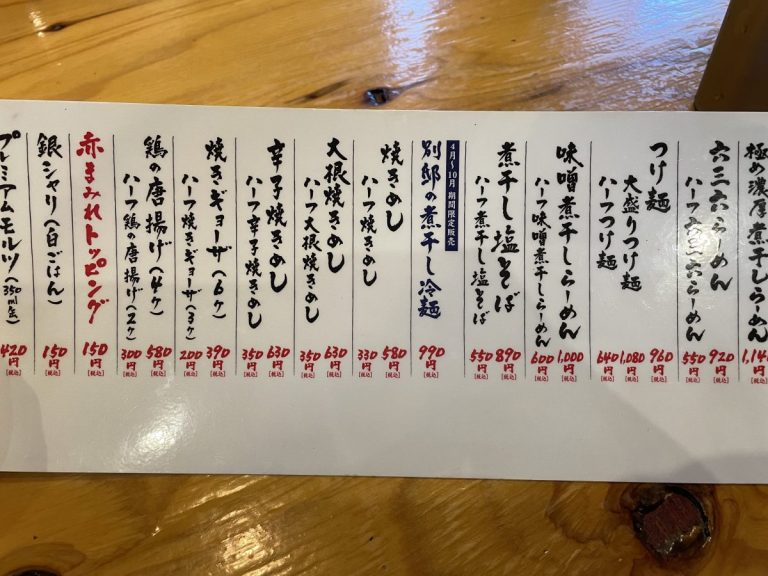 極め濃厚煮干しらーめん 1,14
円
[税込]
六三六らーめん 920円[税込]
ハーフ六三六らーめん 550円[税込]
つけ麺 960円[税込]
大盛りつけ麺 1,080円[税込]
ハーフつけ麺 640円[税込]
味噌煮干しらーめん 1,000円[税込]
ハーフ味噌煮干しらーめん 600円[税込]
煮干し塩そば 890円[税込]
ハーフ煮干し塩そば 550円[税込]
4月〜10月 期間限定販売
別邸の煮干し冷麺 990円[税込]
焼きめし 580円[税込]
ハーフ焼きめし 330円[税込]
大根焼きめし 630円[税込]
ハーフ大根焼きめし 350円[税込]
辛子焼きめし 630円[税込]
ハーフ辛子焼きめし 350円[税込]
焼きギョーザ(6ヶ) 390円[税込]
ハーフ焼きギョーザ(3ヶ) 200円[税込]
鶏の唐揚げ(4ヶ) 580円[税込]
ハーフ鶏の唐揚げ(2ヶ) 300円[税込]
赤まみれトッピング 150円[税込]
銀シャリ(白ごはん) 150円[税込]
プレミアムモルツ(350ml缶) 420円[税込]